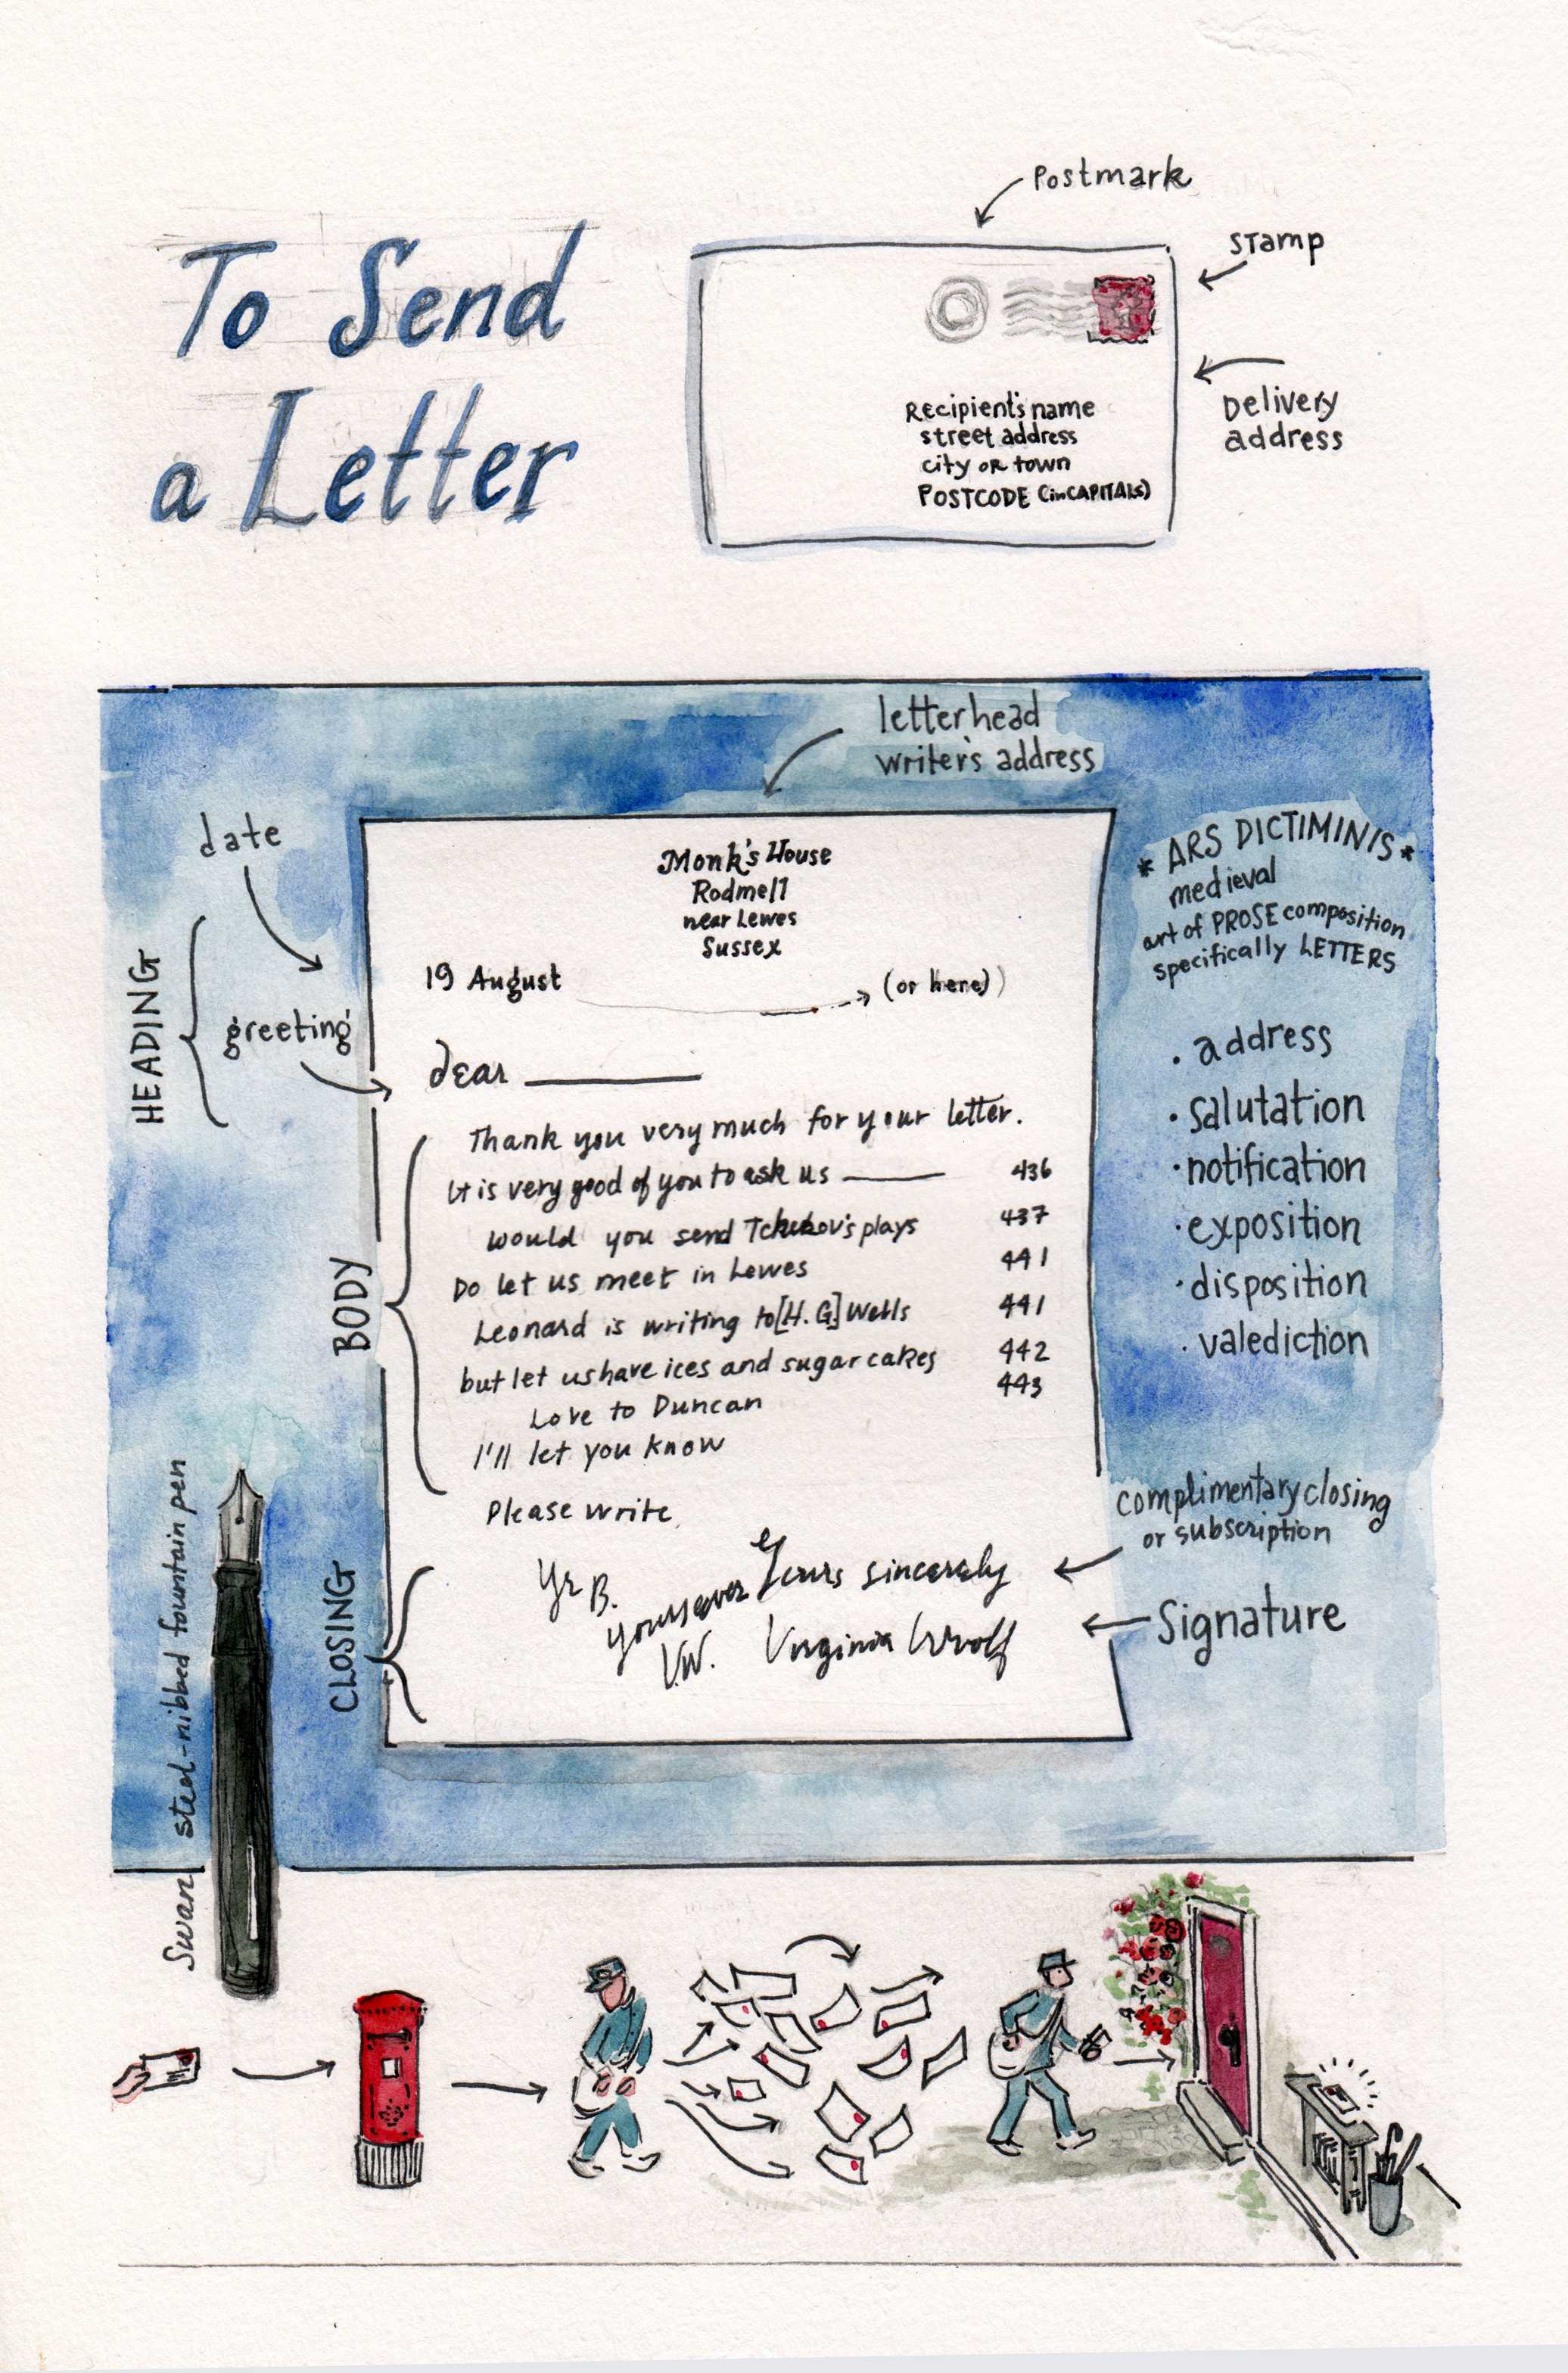 To Send
a Letter
Postmark
stamp
Delivery
address
Recipient's name
street address
city or town
POSTCODE (in CAPITALS)
letterhead
writer's address
date
HEADING
greeting
Monk's House
Rodmell
near Lewes
Sussex
19 August
(or here)
dear
BODY
Thank you very much for your letter.
It is very good of you to ask us 436
would you send plays 437
Do let us meet in Lewes 441
Leonard is writing to [H.G.] Wells 441
but let us have ices and sugar cakes 442
Love to Duncan 443
I'll let you know
Please write
CLOSING
Yr B.
Yours ever
V.W.
Yours sincerely
Virginia Woolf
* ARS DICTIMINIS *
medieval
art of PROSE composition
specifically LETTERS
· address
· salutation
· notification
· exposition
· disposition
· valediction
complimentary closing
or subscription
Signature
Swan steel-nibbed fountain pen